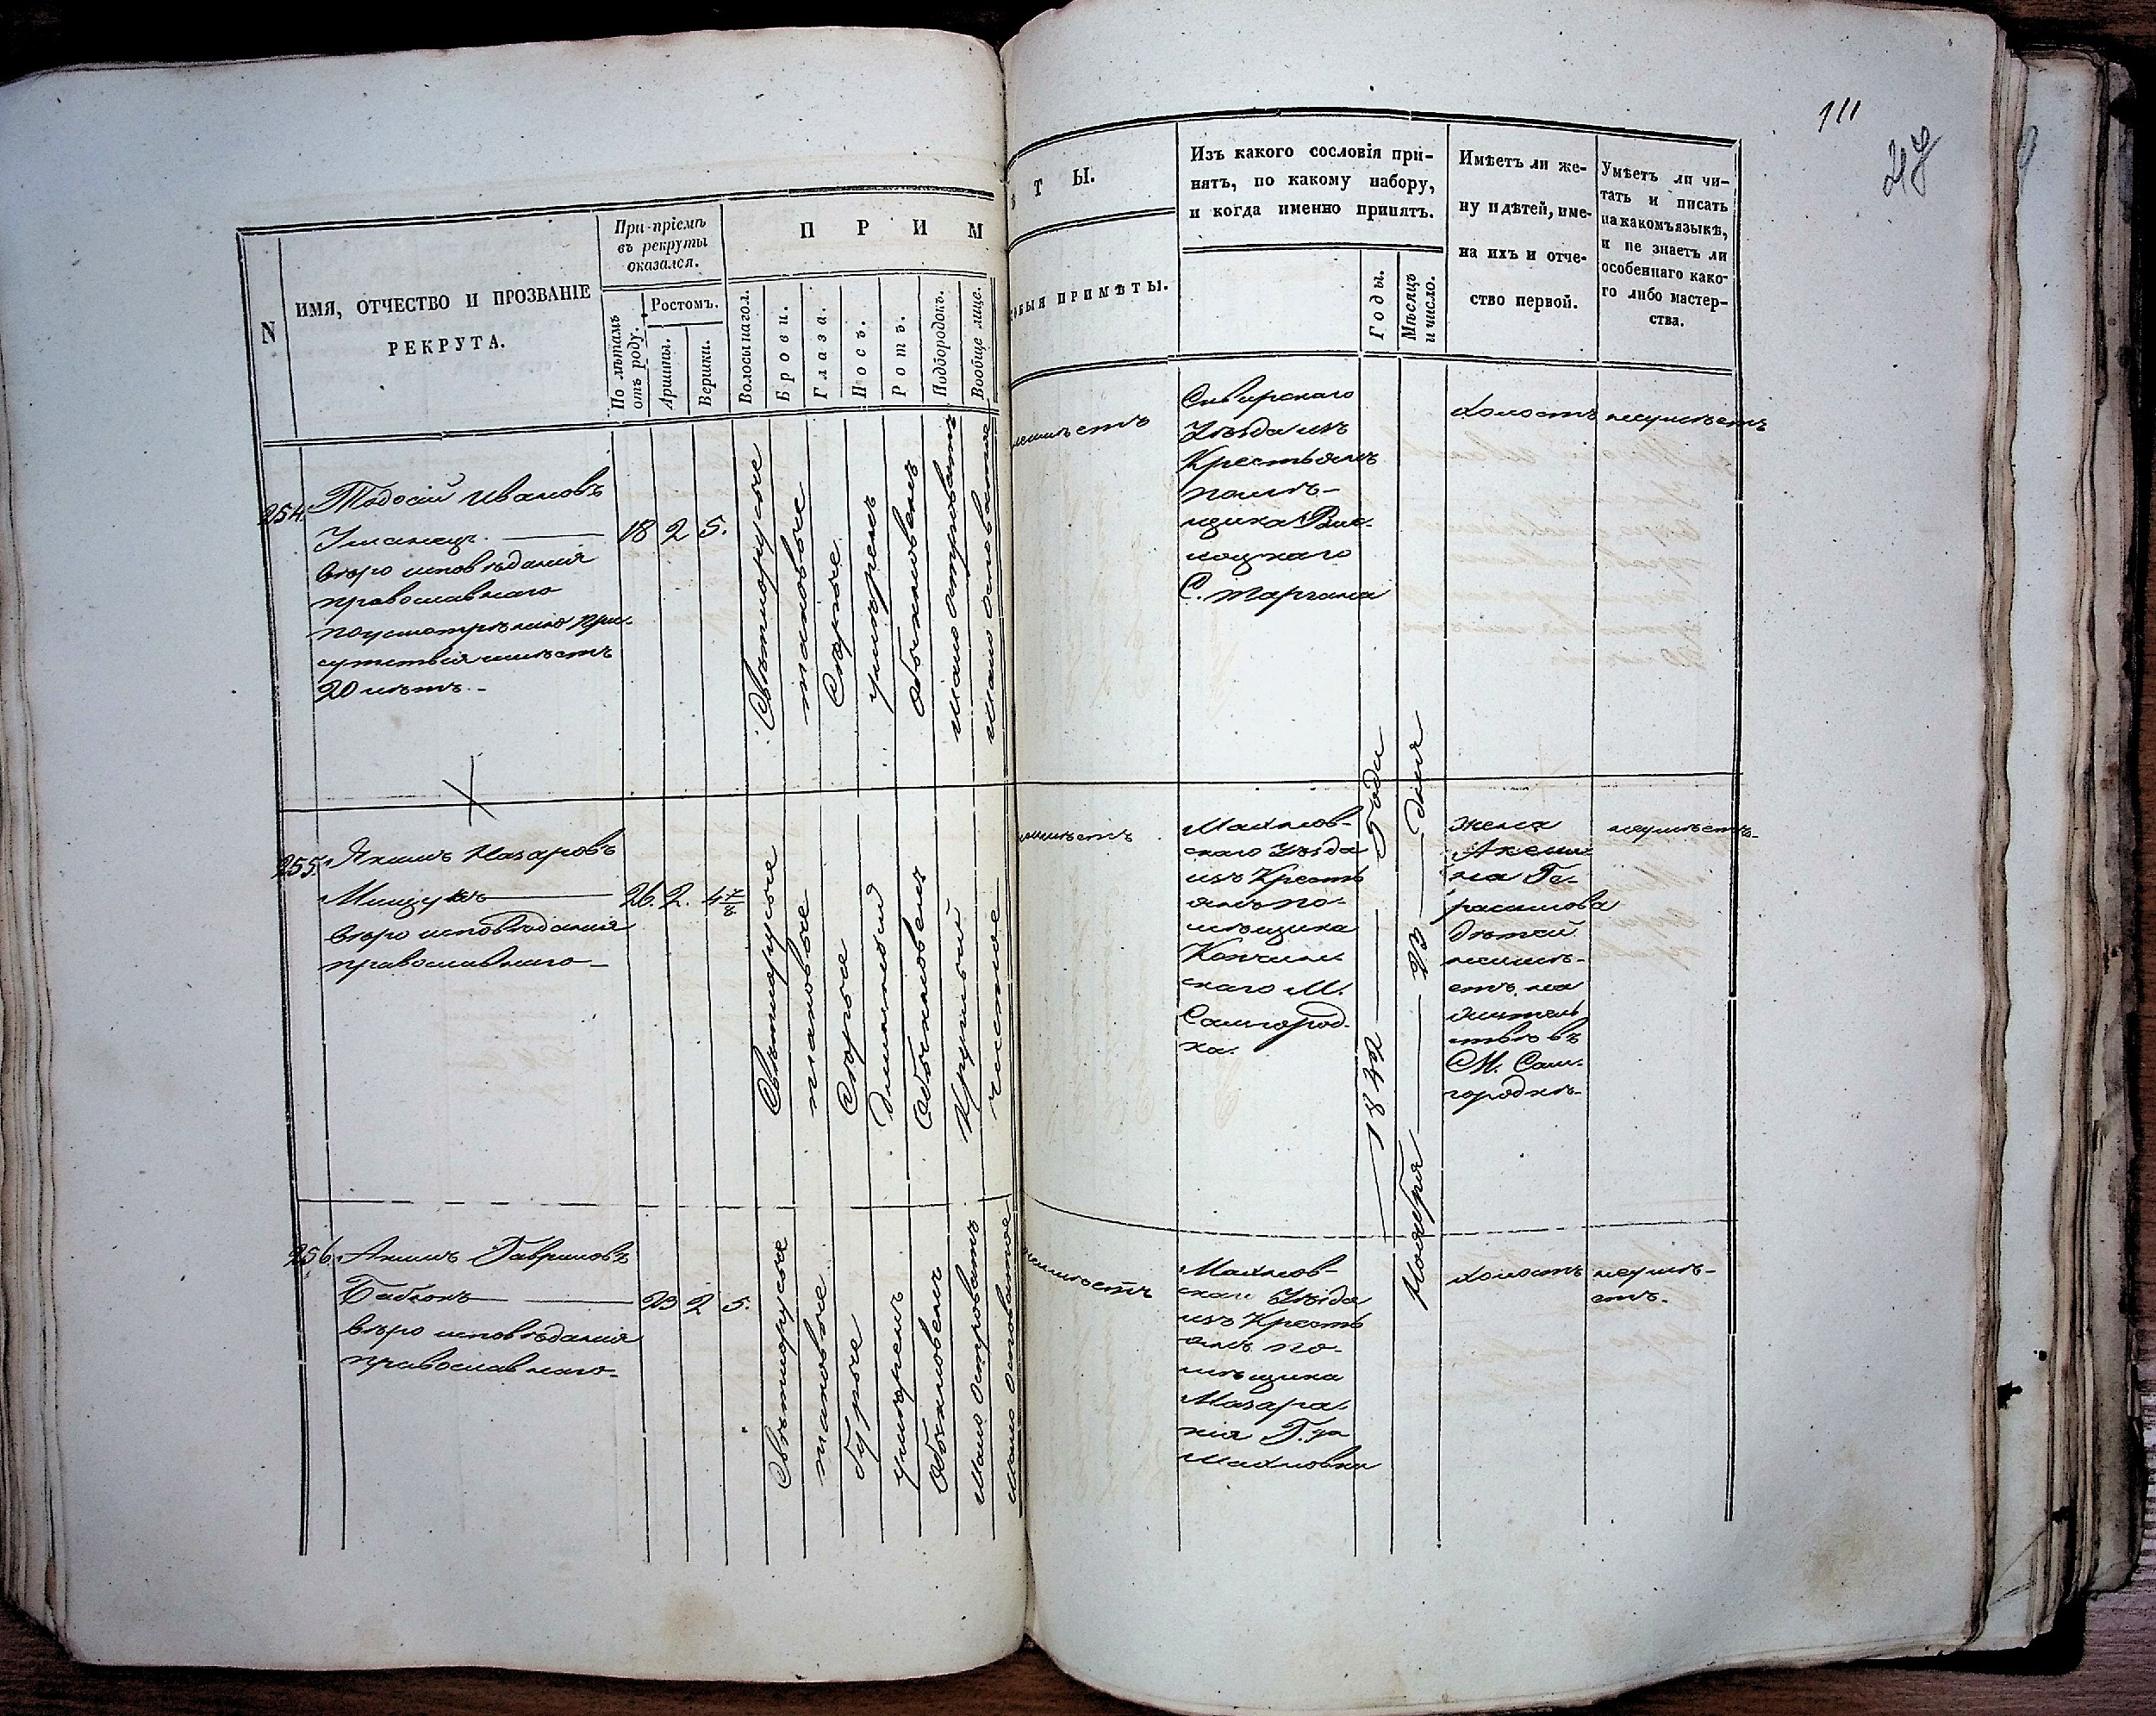 111
N
ИМЯ, ОТЧЕСТВО И ПРОЗВАНІЕ
РЕКРУТА.
При пріемѣ
въ рекруты
оказался.
По лѣтамъ
отъ роду.
Ростомъ.
Аршины.
Вершки.
П Р И М
Волосы на гол.
Брови.
Глаза.
Носъ.
Ротъ.
Подбородокъ.
Вообще лице.
Т Ы.
ОБЫЯ ПРИМѢТЫ.
Изъ какого сословія при-
нятъ, по какому набору,
и когда именно принятъ.
Годы.
Мѣсяцъ
и число.
Имѣетъ ли же-
ну и дѣтей, име-
на ихъ и отче-
ство первой.
Умѣетъ ли чи-
тать и писать
на какомъ языкѣ,
и не знаетъ ли
особеннаго како-
го либо мастер-
ства.
254.
Тодосій Ивановъ
Уманецъ
вѣро исповѣданія
православнаго
по усмотрѣнію при-
сутствія имѣетъ
20 лѣтъ.-
18
2
5.
Свѣтлорусые
таковые
Сѣрые
умѣренъ
Обыкновенъ
мало островатъ
мало осповатое
неимѣетъ
Сквирскаго
Уѣзда изъ
Крестьянъ
помѣ-
щика
С.
холостъ
неумѣетъ
255.
Якимъ Назаровъ
вѣро исповѣданія
православнаго
26.
2.
4 7/8
Свѣтлорусые
таковые
Сѣрые
Обыкновенъ
Круглый
чистое
неимѣетъ
Махнов-
скаго Уѣзда
изъ Кресть
янъ по-
мѣщика
скаго М.
Самгород-
ка.
1842 Года
Ноября 23 дня
жена
Аксень
на Ге-
расимова
дѣтей
неимѣ-
етъ на
житель
ствѣ въ
М. Сам-
городкѣ
неумѣетъ
256.
Акимъ Гавриловъ
вѣро исповѣданія
православнаго
23
2
5.
Свѣтлорусые
таковые
бурые
умѣренъ
Обыкновенъ
мало островатъ
мало осповатое
неимѣетъ
Махнов-
скаго Уѣзда
изъ Кресть
янъ по-
мѣщика
Махновки
холостъ
неумѣ-
етъ.